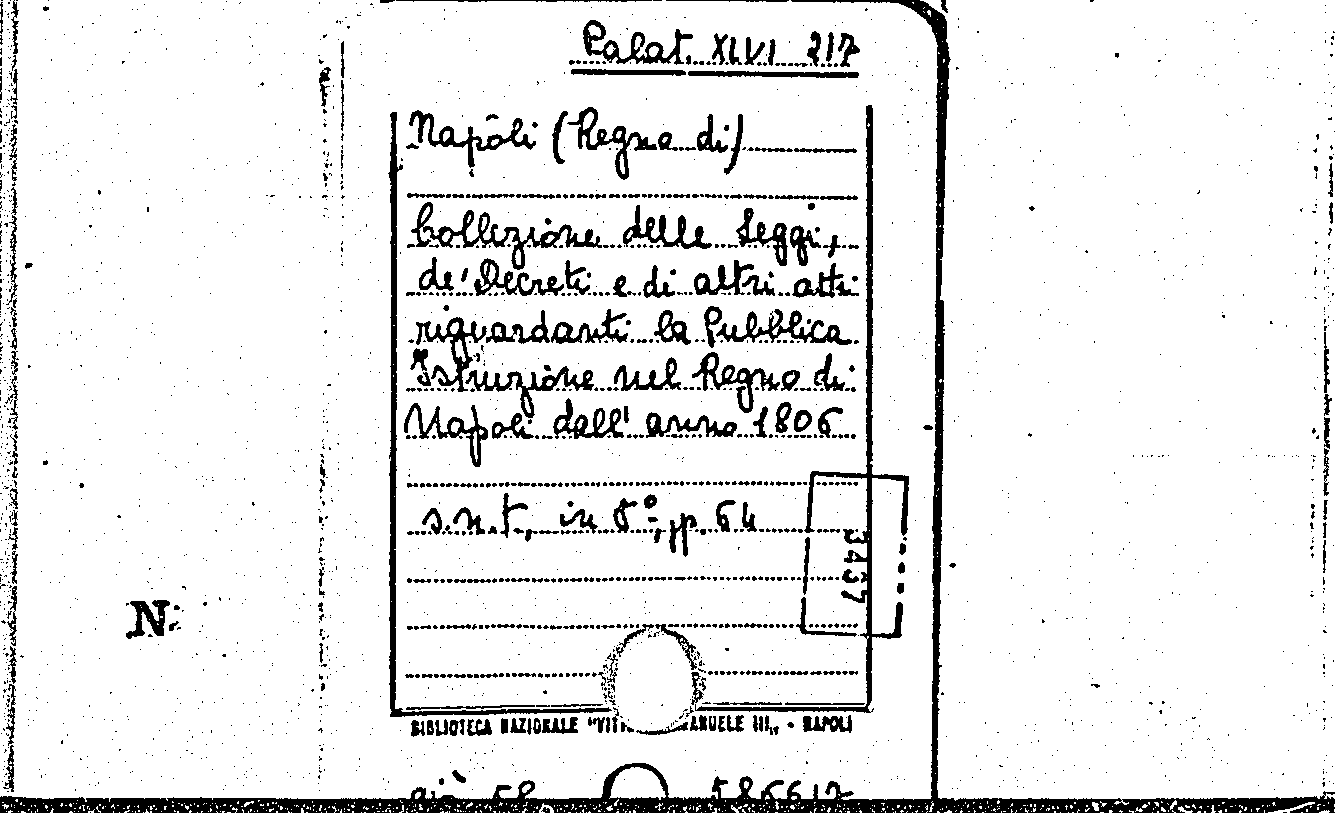 Palat. XLVI 217
Napoli (Regno di)
Collezione delle Leggi,
de' Decreti e di altri atti
riguardanti la Pubblica
Istruzione nel Regno di
Napoli dall' anno 1806
s.n.t., in 8°, p. 64
3437
N.
BIBLIOTECA NAZIONALE "VITT ANUELE III„ - NAPOLI
già 58